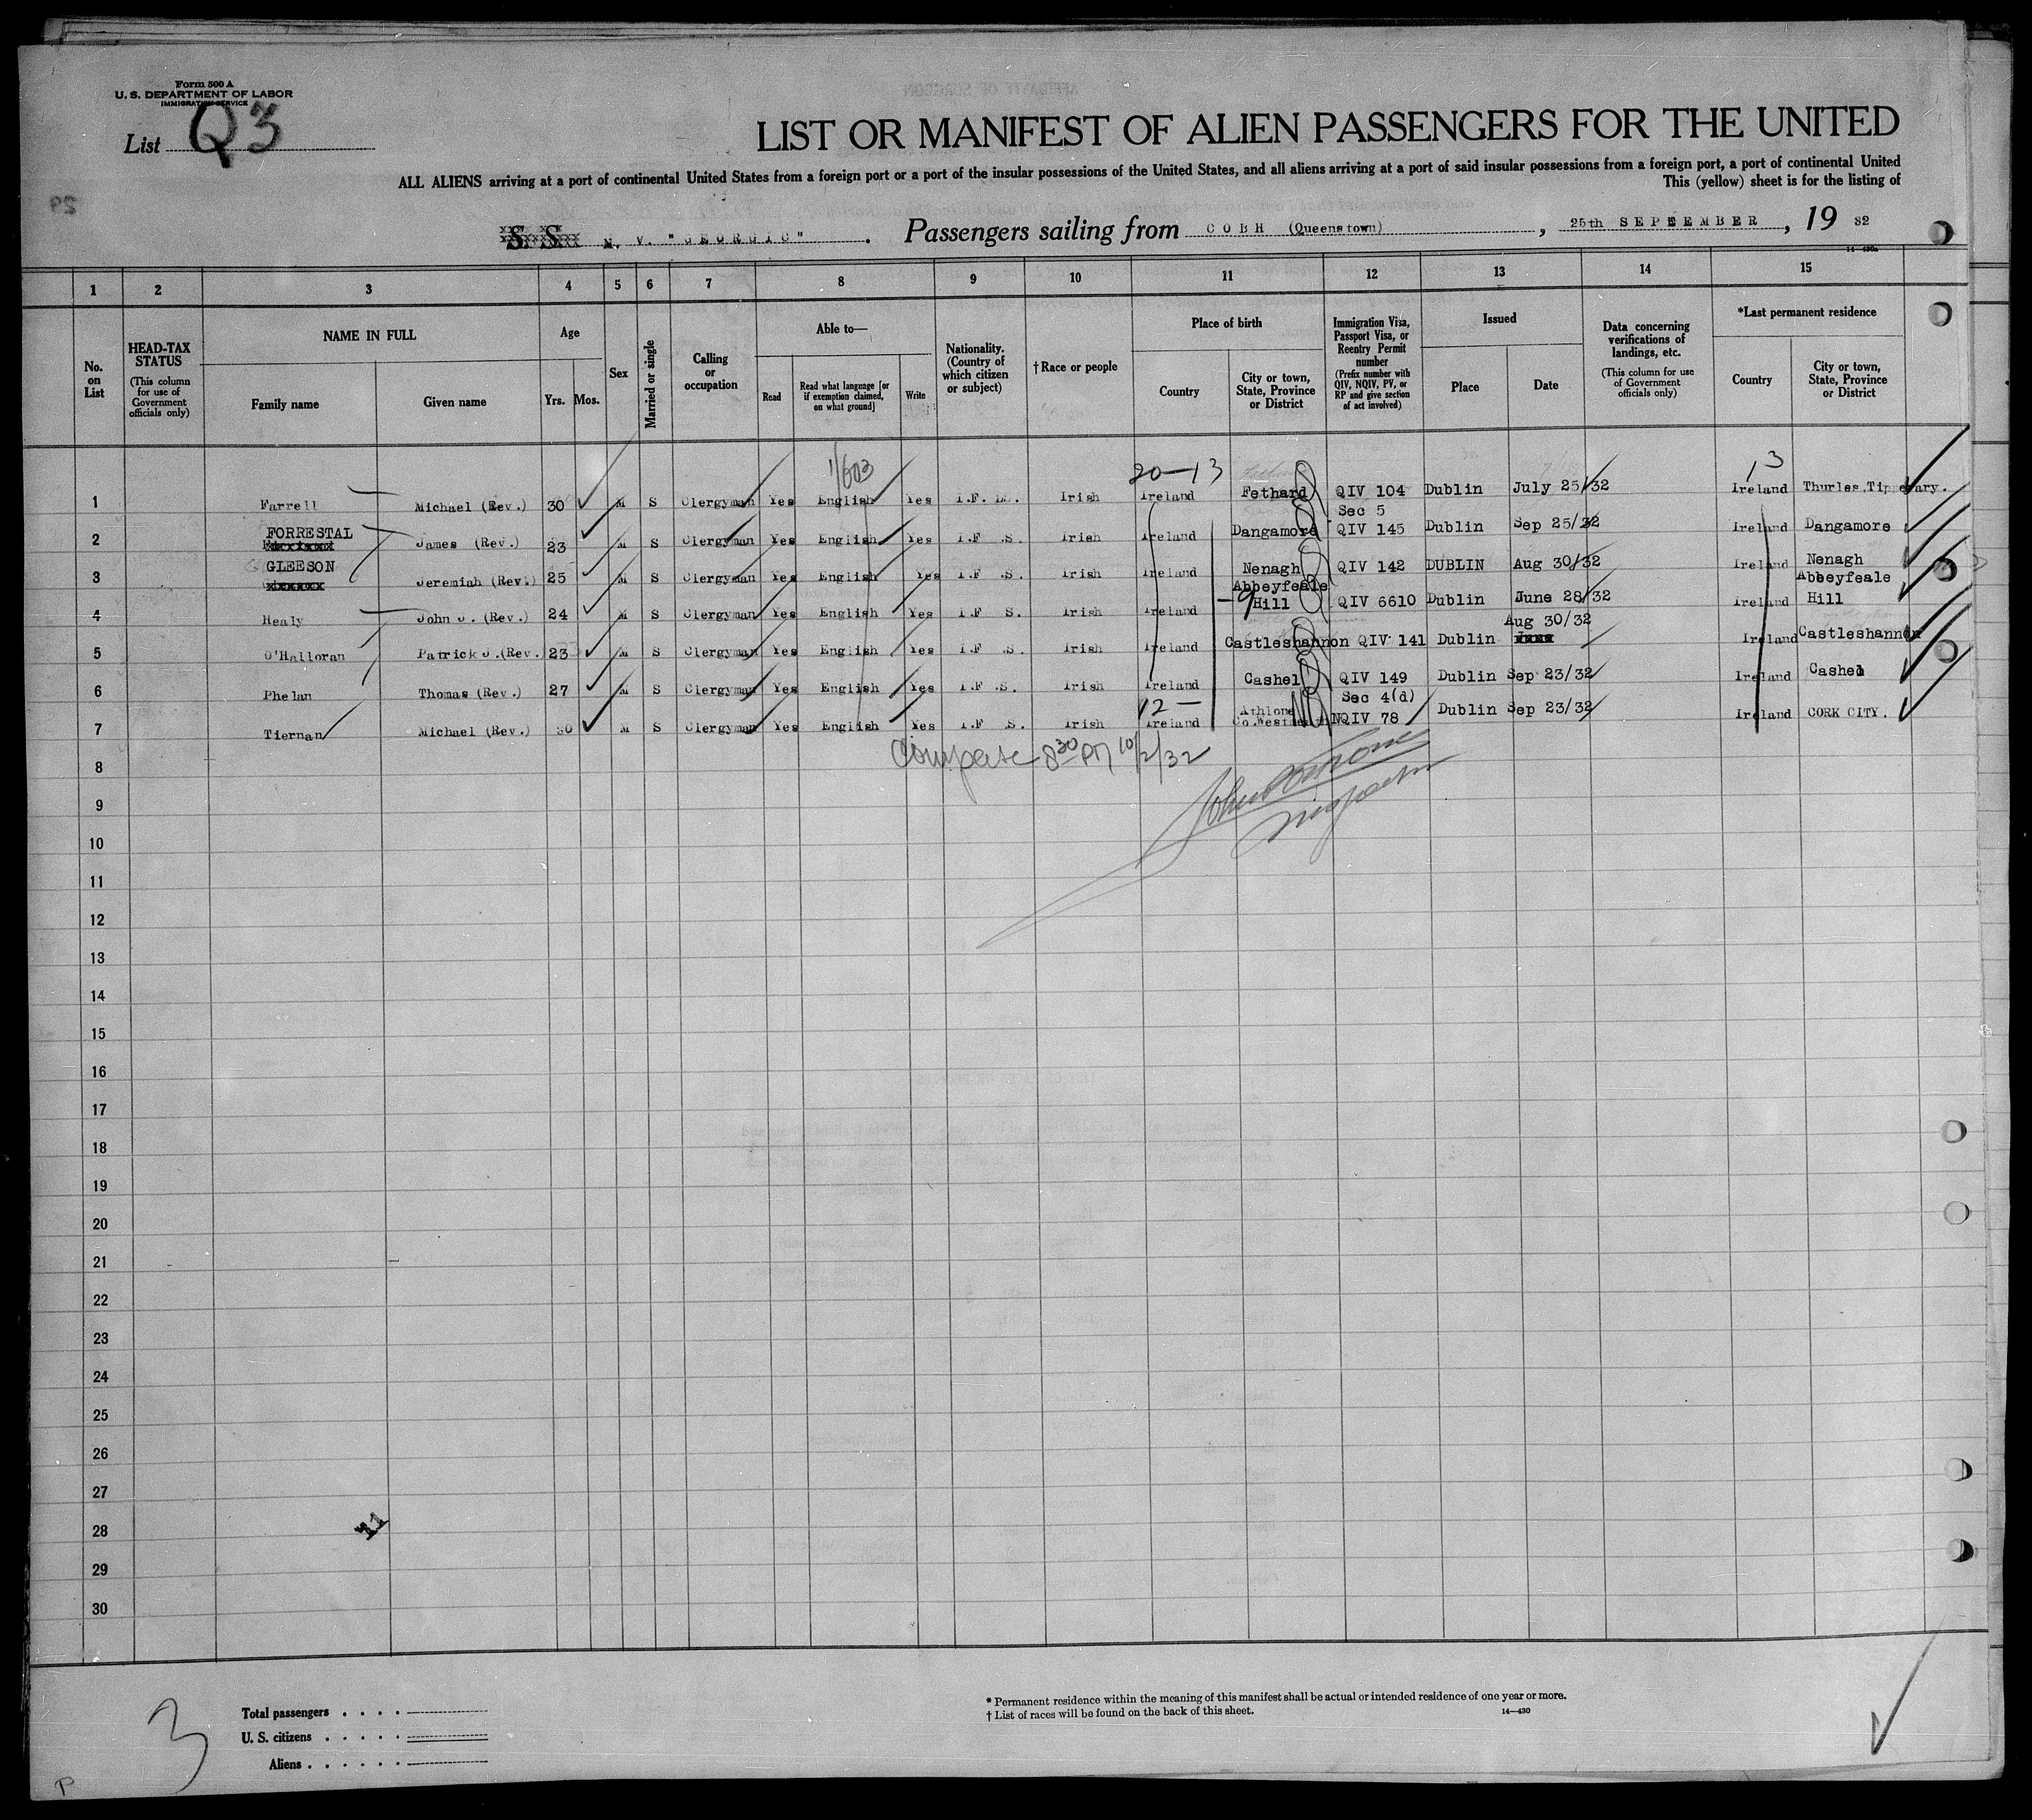 Form 500 A
U. S. DEPARTMENT OF LABOR
IMMIGRATION SERVICE
List Q3
LIST OR MANIFEST OF ALIEN PASSENGERS FOR THE UNITED
ALL ALIENS arriving at a port of continental United States from a foreign port or a port of the insular possessions of the United States, and all aliens arriving at a port of said insular possessions from a foreign port, a port of continental United
This (yellow) sheet is for the listing of
S. S. M. V. "GEORGIC" . Passengers sailing from COBH (Queenstown) , 25th SEPEEMBER , 19 32
14-430a
1 2 3 4 5 6 7 8 9 10 11 12 13 14 15
No. on List
HEAD-TAX STATUS
(This column for use of Government officials only)
NAME IN FULL
Family name
Given name
Age
Yrs. Mos.
Sex
Married or single
Calling or occupation
Able to—
Read
Read what language [or if exemption claimed, on what ground]
Write
Nationality. (Country of which citizen or subject)
†Race or people
Place of birth
Country
City or town, State, Province or District
Immigration Visa, Passport Visa, or Reentry Permit number
(Prefix number with QIV, NQIV, PV, or RP and give section of act involved)
Issued
Place
Date
Data concerning verifications of landings, etc.
(This column for use of Government officials only)
*Last permanent residence
Country
City or town, State, Province or District
1/603 20-13 13
1 Farrell Michael (Rev.) 30 M S Clergyman Yes English Yes I.F. Irish Ireland Fethard QIV 104 Dublin July 25/32 Ireland Thurles, Tipperary.
Sec 5
2 FORRESTAL James (Rev.) 23 M S Clergyman Yes English Yes I.F .S. Irish Ireland Dangamore QIV 145 Dublin Sep 25/32 Ireland Dangamore
3 GLEESON Jeremiah (Rev.) 25 M S Clergyman Yes English Yes I.F .S. Irish Ireland Nenagh QIV 142 DUBLIN Aug 30/32 Ireland Nenagh
4 Healy John J. (Rev.) 24 M S Clergyman Yes English Yes I.F S. Irish Ireland -9 Abbeyfeale Hill QIV 6610 Dublin June 28/32 Ireland Abbeyfeale Hill
5 O'Halloran Patrick J.(Rev. 23 M S Clergyman Yes English Yes I.F .S. Irish Ireland Castleshannon QIV 141 Dublin Aug 30/32 Ireland Castleshannon
6 Phelan Thomas (Rev.) 27 M S Clergyman Yes English Yes I.F .S. Irish Ireland Cashel QIV 149 Dublin Sep 23/32 Ireland Cashel
12 - Sec 4(d)
7 Tiernan Michael (Rev.) 30 M S Clergyman Yes English Yes I.F S. Irish Ireland Athlone Co.Westmeath NQIV 78 Dublin Sep 23/32 Ireland CORK CITY.
8 8 30 PM 10/2/32
9
10
11
12
13
14
15
16
17
18
19
20
21
22
23
24
25
26
27
28 11
29
30
3
Total passengers
U. S. citizens
Aliens
* Permanent residence within the meaning of this manifest shall be actual or intended residence of one year or more.
† List of races will be found on the back of this sheet.
14—430
P